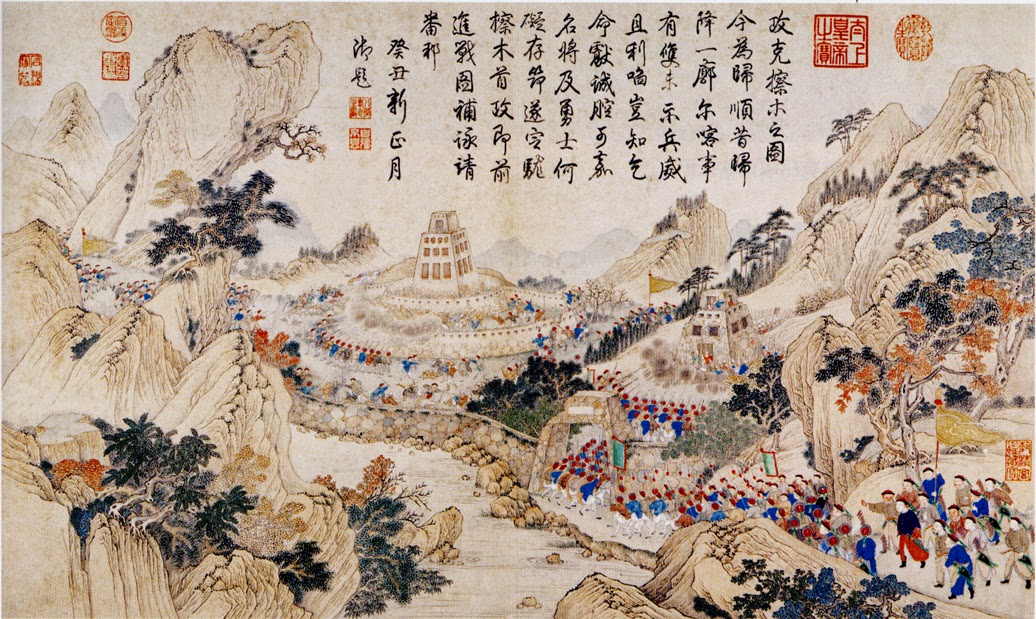 攻克擦木之圖
今為歸順昔歸
降一廓尔喀事
有雙未示兵威
且利啗豈知乞
命獻誠腔可嘉
名將及勇士何
礙存節遂定駹
擦木首攻即前
進戰圖補詠靖
番邦
癸丑新正月
御題
太上
皇帝
之寶